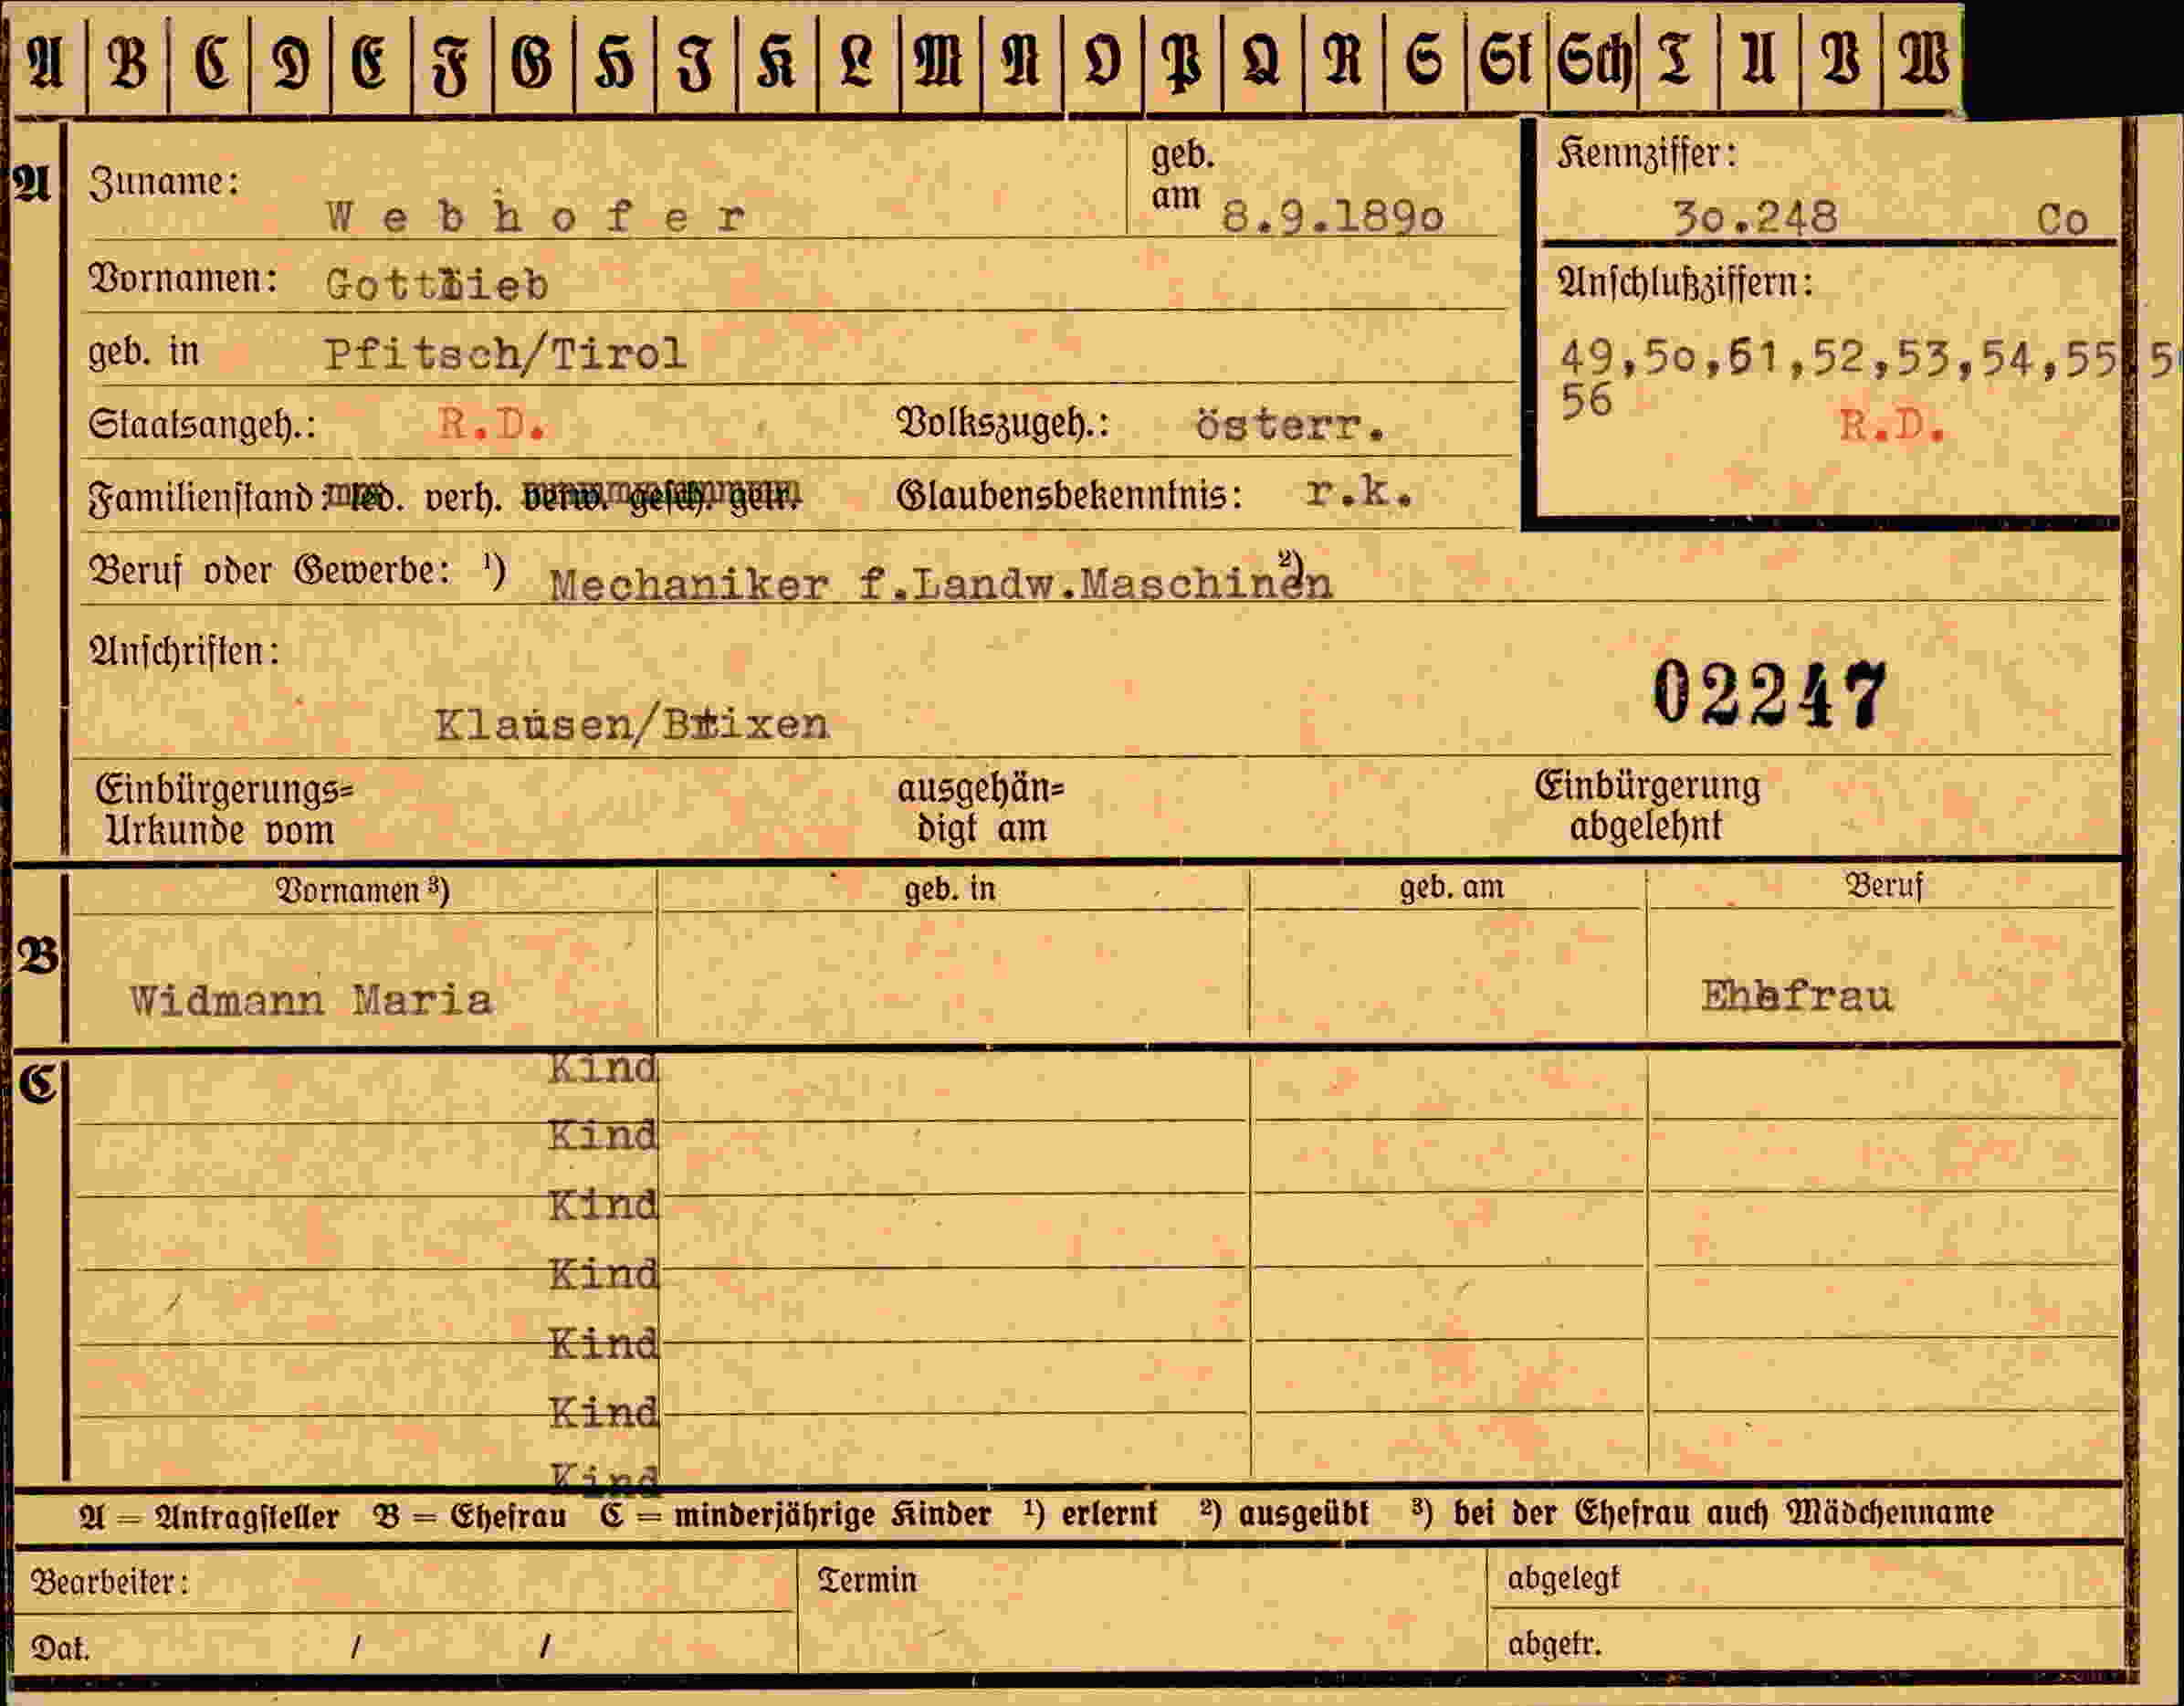 A B C D E F G H I K L M N O P Q R S St Sch T U V W
A Zuname: Webhofer geb. am 8.9.1890
Kennziffer: 30.248 Co
Vornamen: Gottlieb
Anschlußziffern:
geb. in Pfitsch/Tirol
49,50,61,52,53,54,55 5
56
Staatsangeh.: R.D. Volkszugeh.: österr. R.D.
Familienstand: led. verh. verw. gesch. getr. Glaubensbekenntnis: r.k.
Beruf oder Gewerbe: 1) Mechaniker f.Landw.Maschinen 2)
Anschriften:
02247
Klausen/Brixen
Einbürgerungs=
Urkunde vom
ausgehän=
digt am
Einbürgerung
abgelehnt
Vornamen 3) geb. in geb. am Beruf
B
Widmann Maria Ehefrau
C Kind
Kind
Kind
Kind
Kind
Kind
Kind
A = Antragsteller B = Ehefrau C = minderjährige Kinder 1) erlernt 2) ausgeübt 3) bei der Ehefrau auch Mädchenname
Bearbeiter: Termin abgelegt
Dat. / / abgetr.